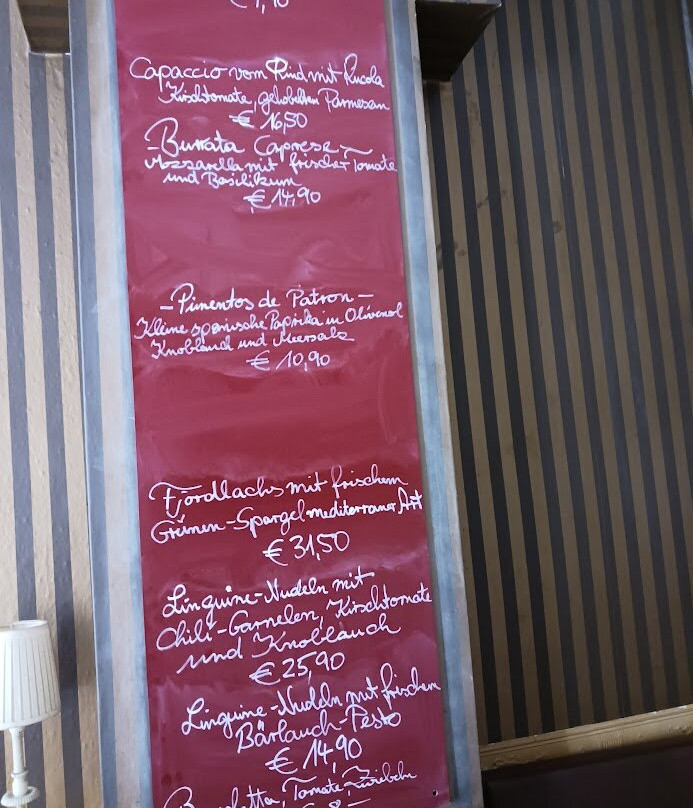 € 7,90
Capaccio vom Rind mit Rucola
Kirschtomate, gehobelten Parmesan
€ 16,50
- Burrata Caprese -
Mozzarella mit frischer Tomate
und Basilikum
€ 14,90
- Pimentos de Patron -
Kleine spanische Paprika in Olivenöl
Knoblauch und Meersalz
€ 10,90
Fjordlachs mit frischem
Grünen-Spargel mediterraner Art
€ 31,50
Linguine-Nudeln mit
Chili-Garnelen, Kirschtomate
und Knoblauch
€ 25,90
Linguine-Nudeln mit frischen
Bärlauch-Pesto
€ 14,90
Tomate, Zwiebeln